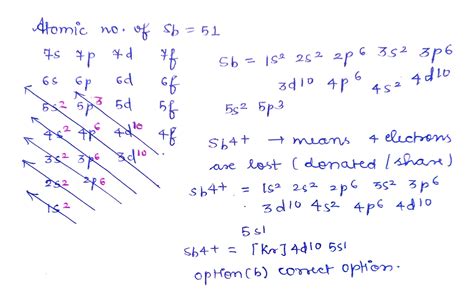 Atomic no. of Sb = 51
7s 7p 7d 7f
6s 6p 6d 6f
5s2 5p3 5d 5f
4s2 4p6 4d10 4f
3s2 3p6 3d10
2s2 2p6
1s2
Sb = 1s2 2s2 2p6 3s2 3p6
3d10 4p6 4s2 4d10
5s2 5p3
Sb4+ → means 4 electrons
are lost (donated/share)
Sb4+ = 1s2 2s2 2p6 3s2 3p6
3d10 4s2 4p6 4d10
5s1
Sb4+ = [Kr] 4d10 5s1
option(b) correct option.